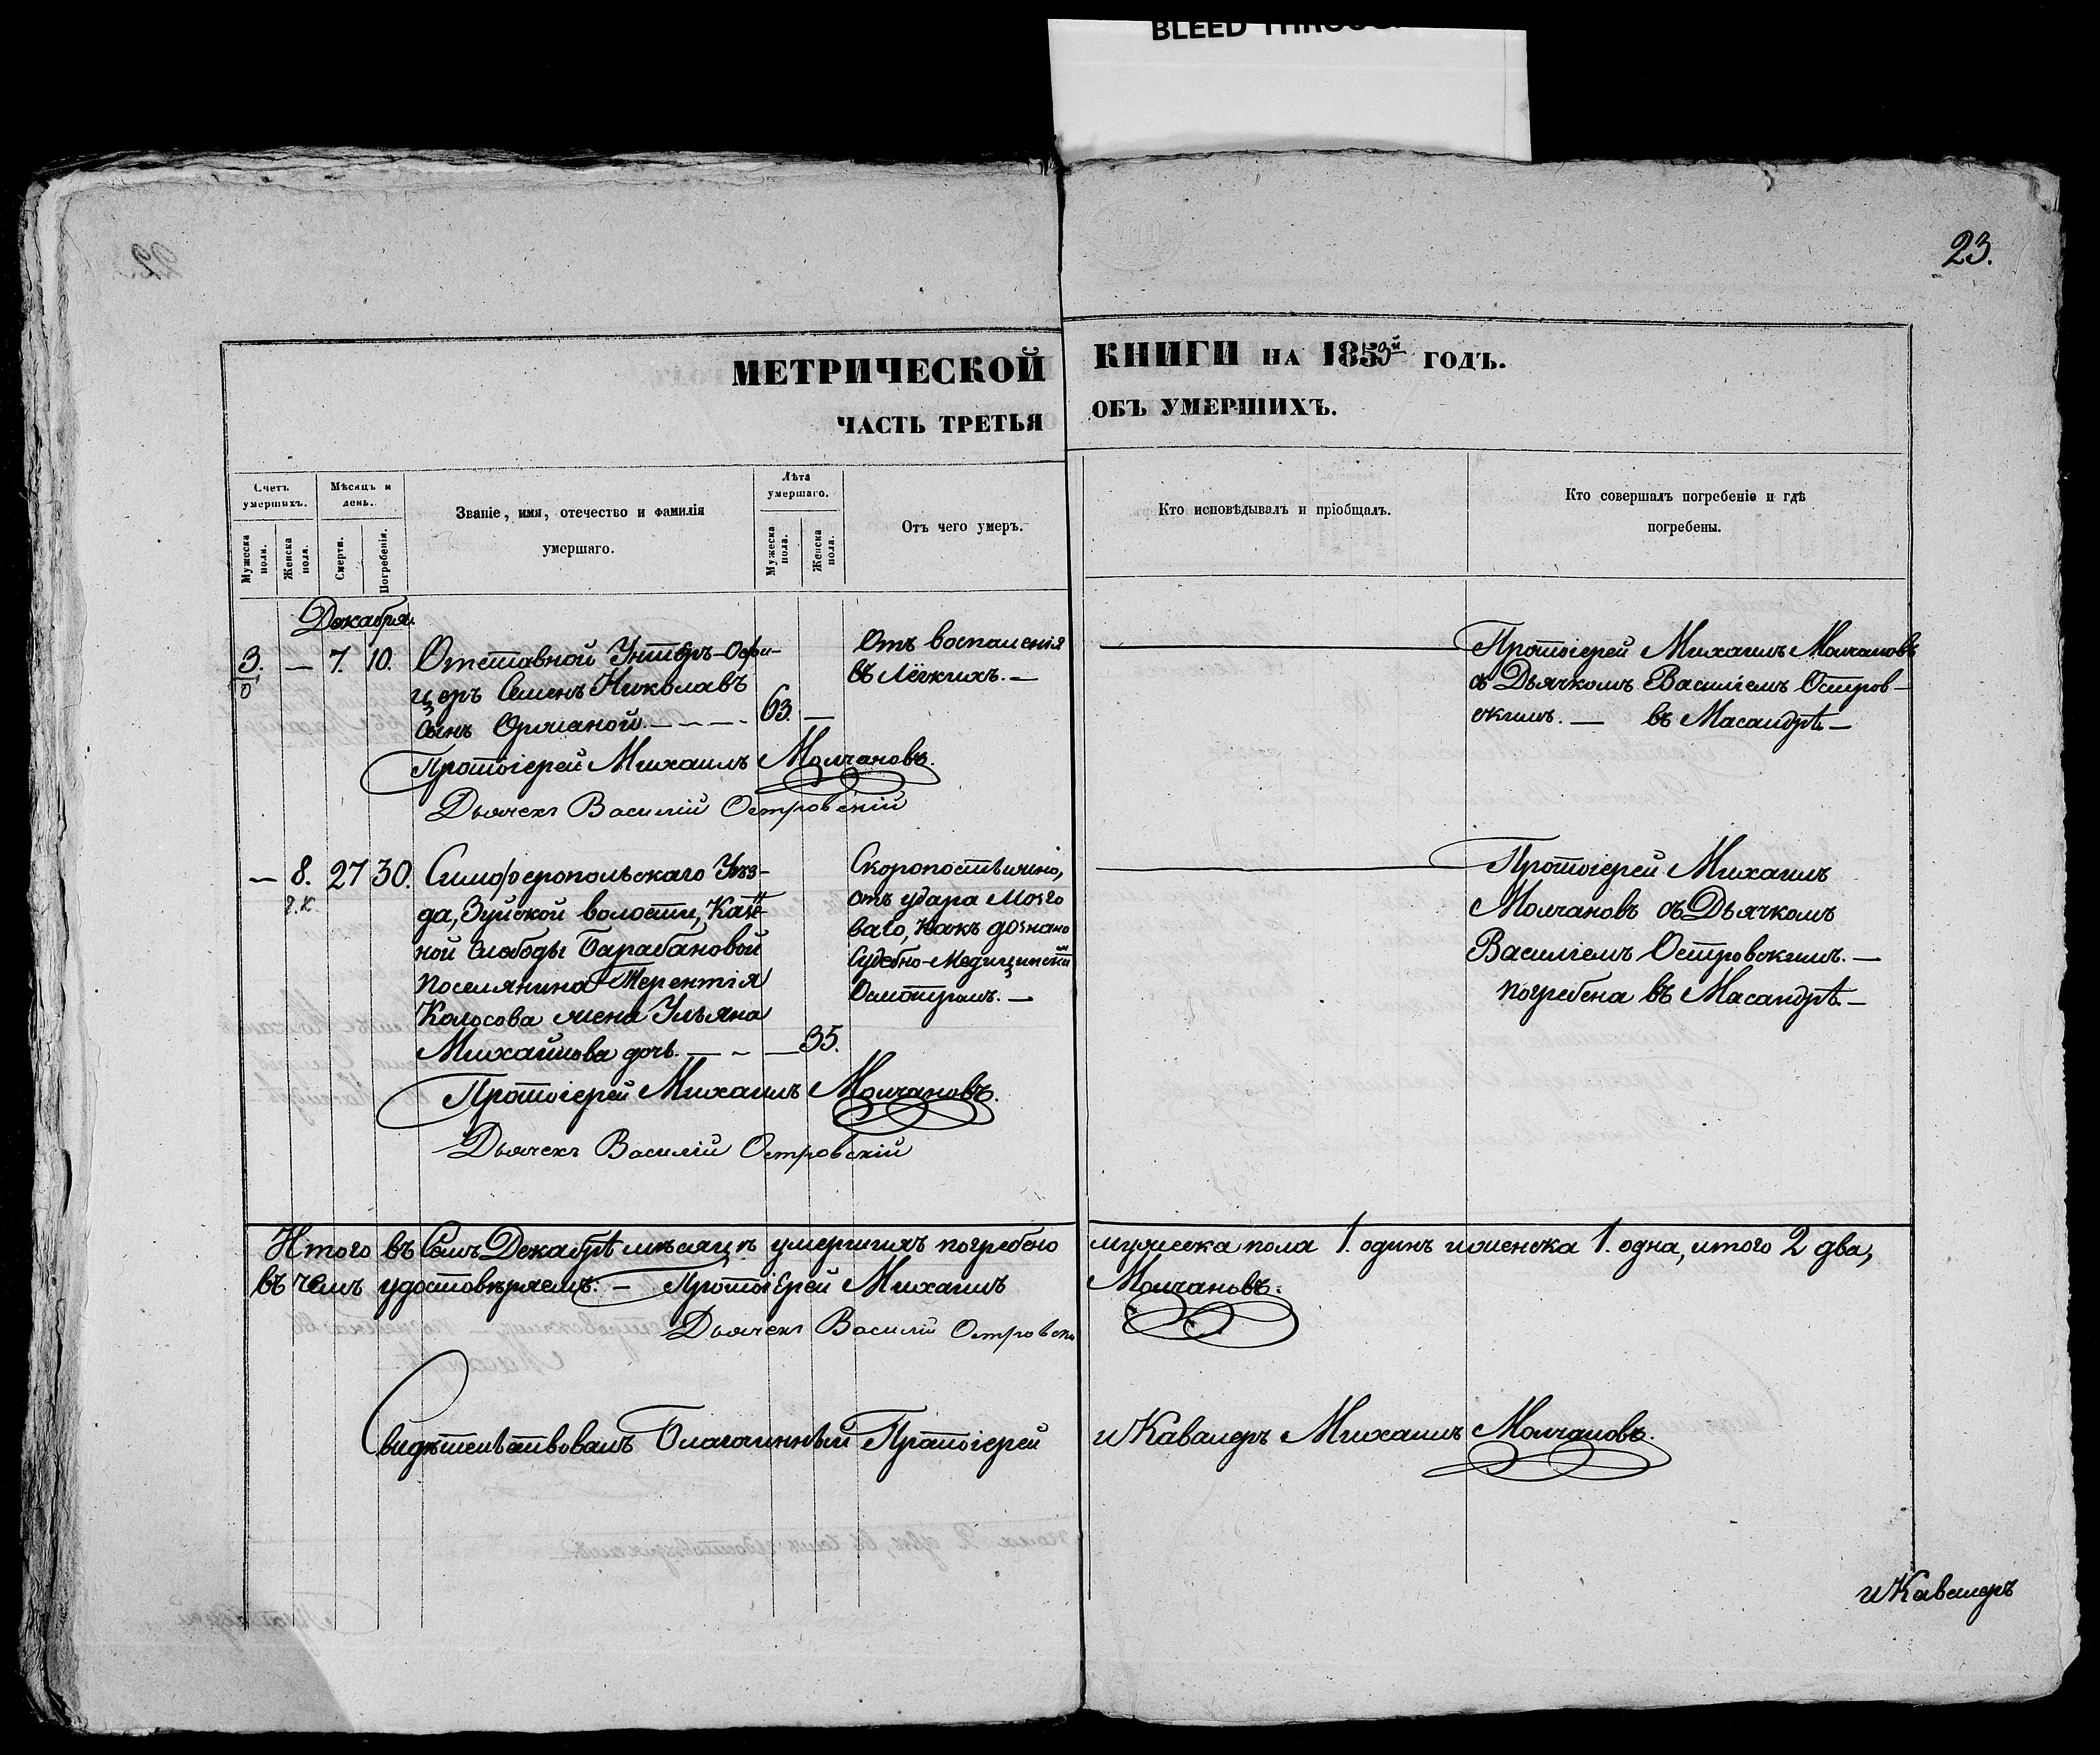 BLEED THROUGH
22.
23.
МЕТРИЧЕСКОЙ КНИГИ НА 1853й ГОДЪ.
ЧАСТЬ ТРЕТЬЯ ОБЪ УМЕРШИХЪ.
Счетъ умершихъ.
Мужеска пола.
Женска пола.
Мѣсяцъ и день.
Смерти.
Погребенія.
Званіе, имя, отечество и фамилія
умершаго.
Лѣта умершаго.
Мужеска пола.
Женска пола.
Отъ чего умеръ.
Кто исповѣдывалъ и пріобщалъ.
Кто совершалъ погребеніе и гдѣ
погребены.
Декабря.
3. — 7. 10.
Отставной Унтеръ-Офи-
церъ Семенъ Николавъ
сынъ Орманой. — — — 63. —
Отъ воспаленія
въ Лёгкихъ. —
Протоіерей Михаилъ Молчановъ
съ Дьячкомъ Василіемъ Остров-
скимъ. — въ Масандрѣ —
Протоіерей Михаилъ Молчановъ.
Дьячекъ Василій Островскій
— 8. 27 30.
Симферопольскаго Уѣз-
да, Зуйской волости, Казен-
ной Слободы Барабановой
поселянина Терентія
Колосова жена Ульяна
Михайлова дочь. — - — 35.
Скоропостѣжно,
отъ удара Мозго
ваго, какъ дознано
Судебно-Медицинскимъ
Осмотромъ. —
Протоіерей Михаилъ
Молчановъ съ Дьячкомъ
Василіемъ Островскимъ. —
погребена въ Масандрѣ —
Протоіерей Михаилъ Молчановъ.
Дьячекъ Василій Островскій
Итого въ Семъ Декабрѣ мѣсяцѣ умершихъ погребено мужеска пола 1. одинъ и женска 1. одна, итого 2 два,
въ чемъ удостовѣряемъ. — Протоіерей Михаилъ Молчановъ.
Дьячекъ Василій Островскій
Свидѣтельствовалъ Благочинный Протоіерей и Кавалеръ Михаилъ Молчановъ.
и Кавалеръ